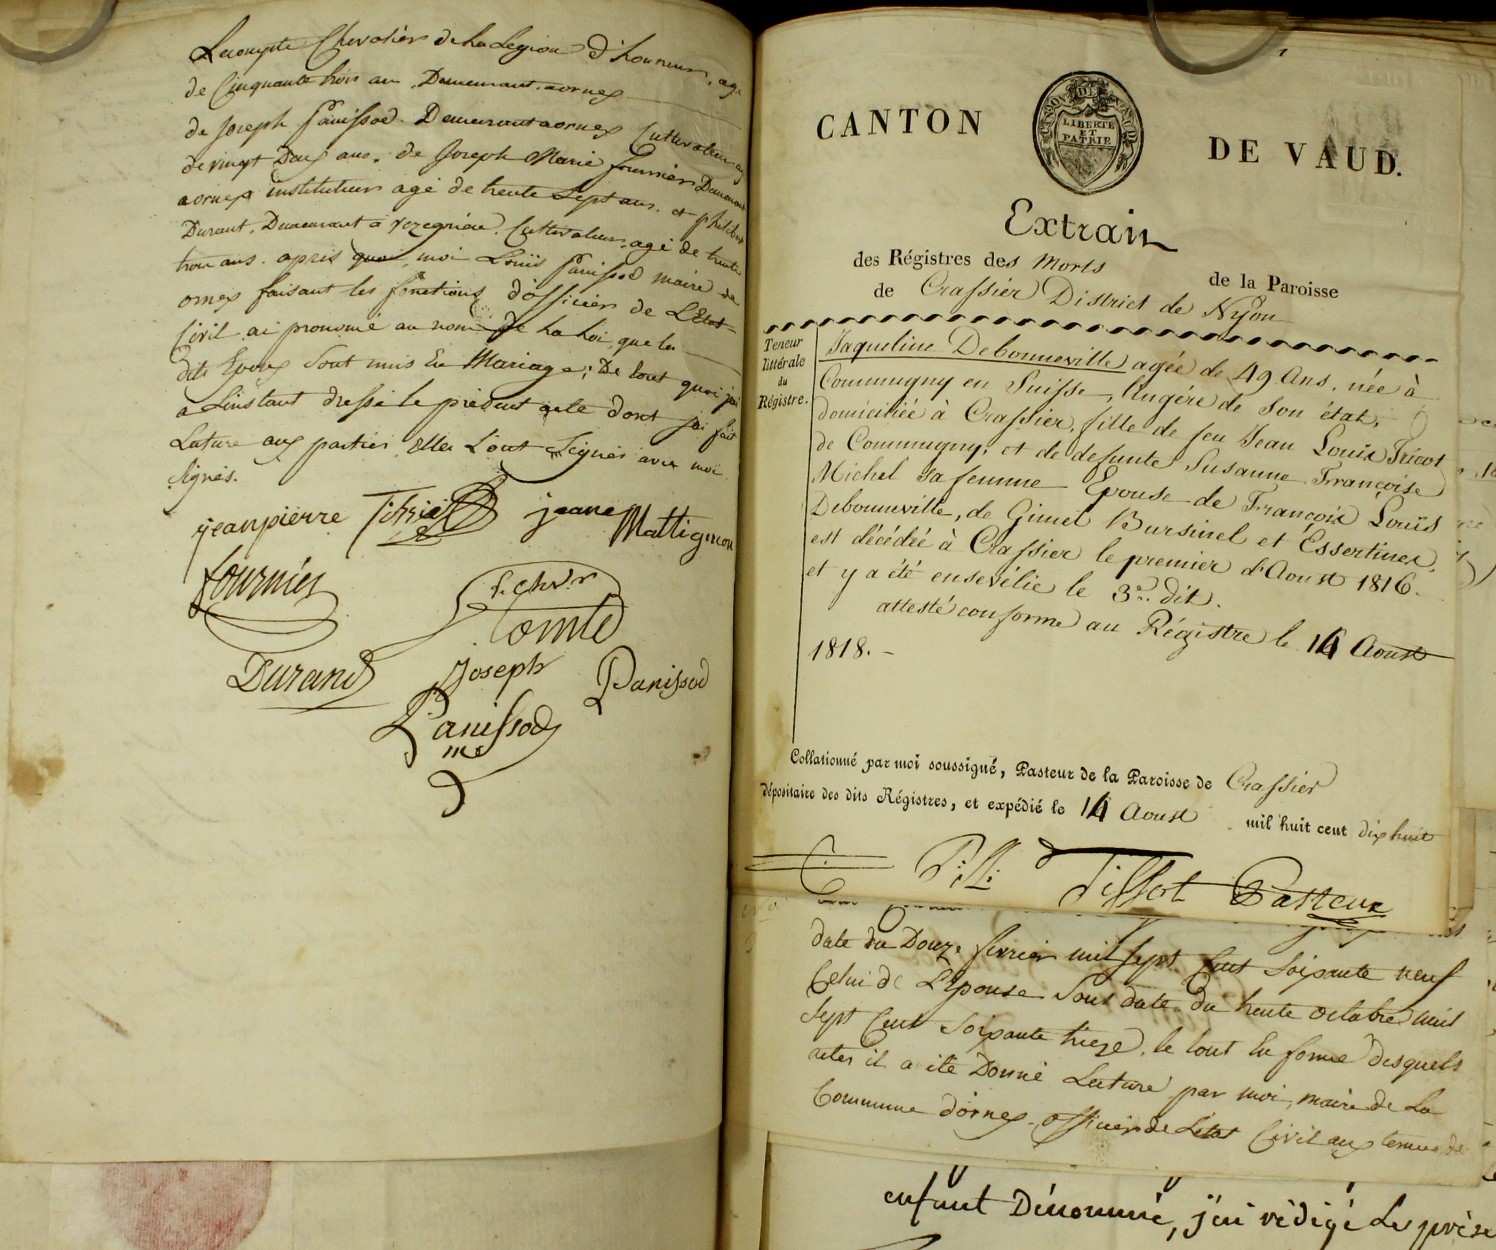 Lecompte Chevalier de La Legion d'honneur, agé
de Cinquante trois ans, Demeurant aornex
de Joseph Panissod Demeurant aornex Cultivateur agé
de vingt Deux ans, de Joseph Marie fournier Demeurant
aornex instituteur agé de trente Sept ans, et philibert
Durant, Demeurant à vezegnin, Cultivateur, agé de trente
trois ans. après quoi, moi Louis Panissod maire de
ornex faisant les fonctions d'officier de L'Etat
Civil ai prononcé au nom De La Loi, que les
dits Epoux Sont unis En Mariage; De tout quoi j'ai
a L'instant dressé le présent acte dont j'ai fait
Lecture aux parties, Elles L'ont Signés avec moi
Signés.
jeanpierre jeane Mattignon
fournier f. chv.r
Comte
Durand Joseph Panissod
Panissod
me
CANTON DE VAUD.
CANTON DE VAUD
LIBERTE
ET
PATRIE
Extrait
des Régistres des Morts de la Paroisse
de Crassier District de Nÿon
Teneur
littérale
du
Régistre.
Jaqueline Debonneville agée de 49 Ans, née à
Commugny en Suisse, lingére de Son état,
domiciliée à Crassier, fille de feu Jean Louis Tricot
de Commugny, et de défunte Susanne Françoise
Michel sa femme Epouse de François Louis
Debonneville, de Gimel Bursinel et Essertines,
est décédée à Crassier le premier d'Aoust 1816.
et y a été ensevélie le 3e. dit.
attesté conforme au Régistre le 14 Aoust
1818. –
Collationné par moi soussigné, Pasteur de la Paroisse de Crassier
dépositaire des dits Régistres, et expédié le 14 Aoust mil huit cent dix huit
Tissot Pasteur
date du Douze fevrier mil Sept Cent Soixante neuf
Celui de L'Epouse Sous date du trente octobre mil
Sept Cent Soixante treize, le tout En forme desquels
actes il a été Donné Lecture par moi, maire de La
Commune d'ornex officier de L'état Civil aux termes de
enfant Dénommé, j'ai rédigé Le prése